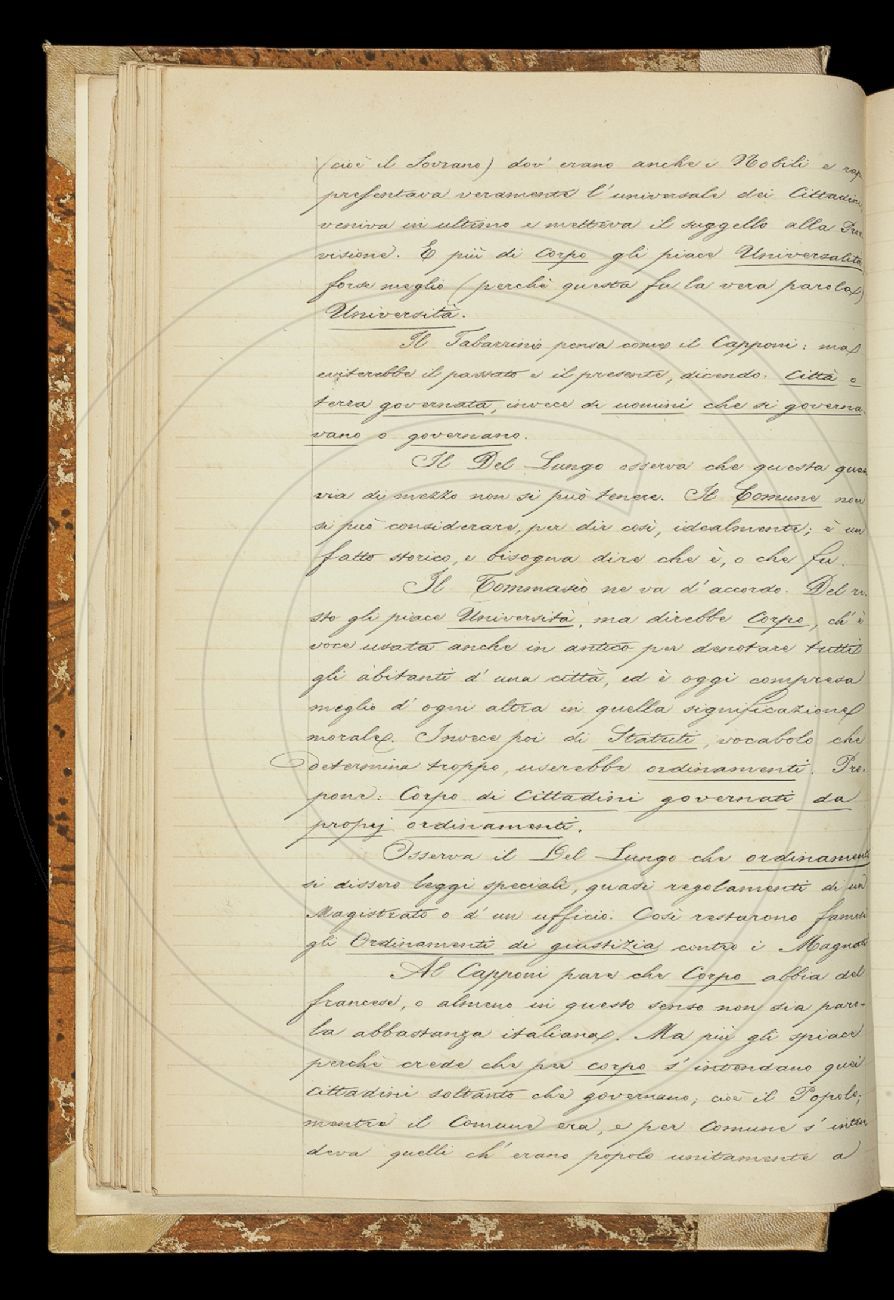 (cioè il Sovrano) dov' erano anche i Nobili e rap
presentava veramente l' universale dei Cittadini,
veniva in ultimo e metteva il suggello alla Prov
visione. E più di Corpo gli piace Universalità
forse meglio (perchè questa fu la vera parola)
Università.
Il Tabarrini pensa come il Capponi: ma
eviterebbe il passato e il presente, dicendo: Città o
terra governata, invece di uomini che si governa
vano o governano.
Il Del Lungo osserva che questa quasi
via di mezzo non si può tenere. Il Comune non
si può considerare, per dir così, idealmente; è un
fatto storico, e bisogna dire che è, o che fu.
Il Tommaseo ne va d' accordo. Del re-
sto gli piace Università, ma direbbe Corpo, ch' è
voce usata anche in antico per denotare tutti
gli abitanti d' una città, ed è oggi compresa
meglio d' ogni altra in quella significazione
morale. Invece poi di Statuti, vocabolo che
determina troppo, userebbe ordinamenti. Pro-
pone: Corpo di Cittadini governati da
proprj ordinamenti.
Osserva il Del Lungo che ordinamenti
si dissero leggi speciali, quasi regolamenti di un
Magistrato o d' un ufficio. Così restarono famosi
gli Ordinamenti di giustizia contro i Magnati
Al Capponi pare che Corpo abbia del
francese, o almeno in questo senso non sia paro-
la abbastanza italiana. Ma più gli spiace
perchè crede che per corpo s' intendano quei
cittadini soltanto che governano, cioè il Popolo;
mentre il Comune era, e per Comune s' inten
deva quelli ch' erano popolo unitamente a